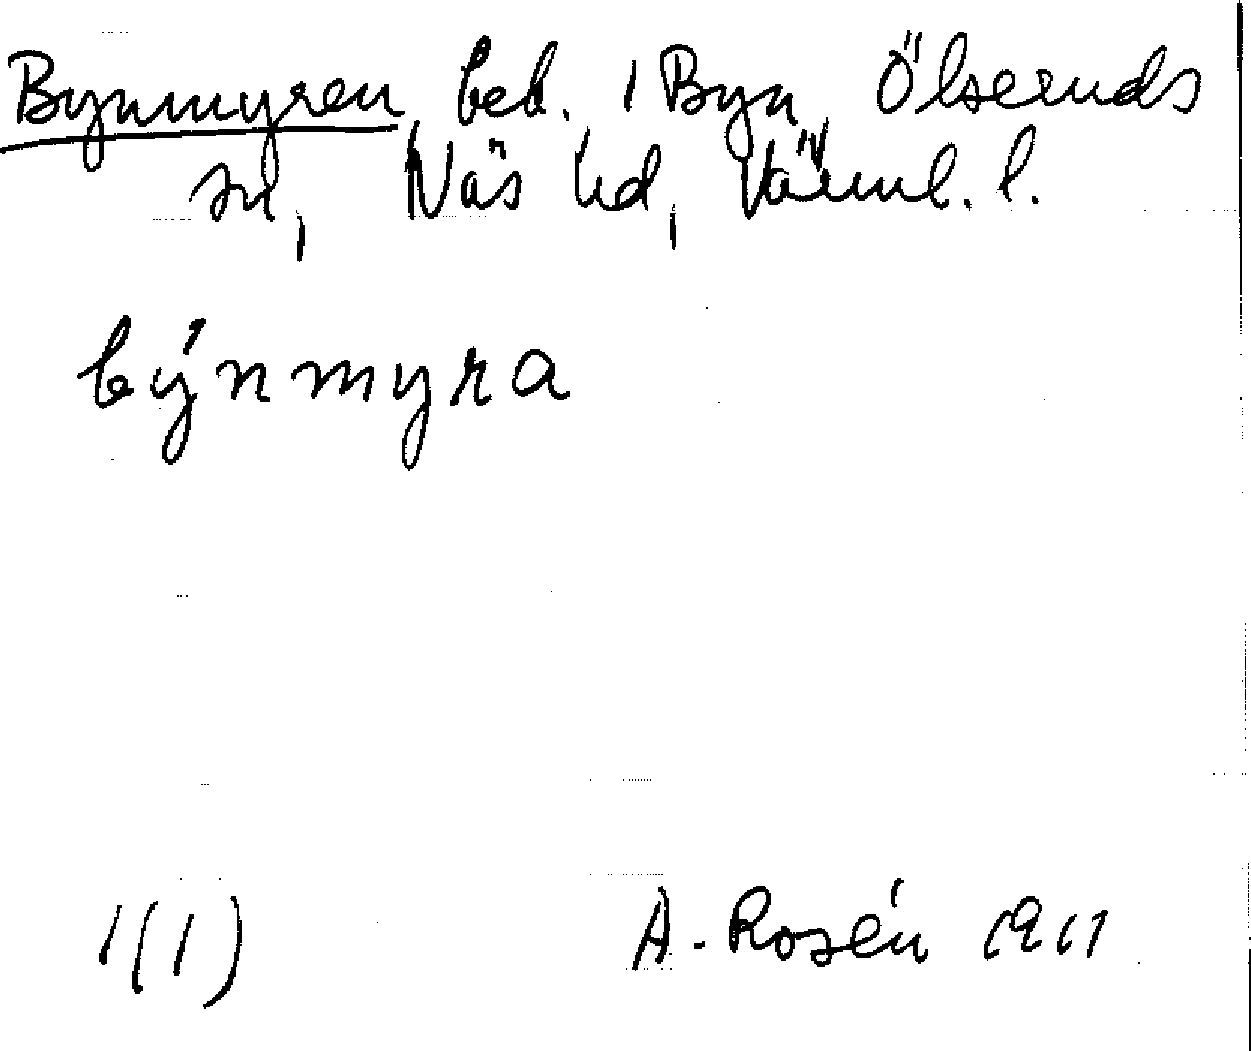 Bynmyren, beb. i Byn, Ölseruds
sn, Näs hd, Värml. l.
býnmyra
1(1) A. Rosén 1911